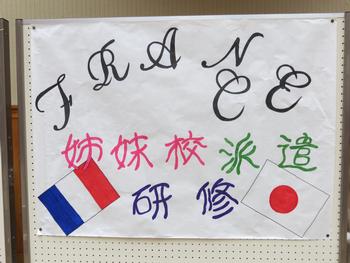 FRANCE
姉妹校派遣
研修